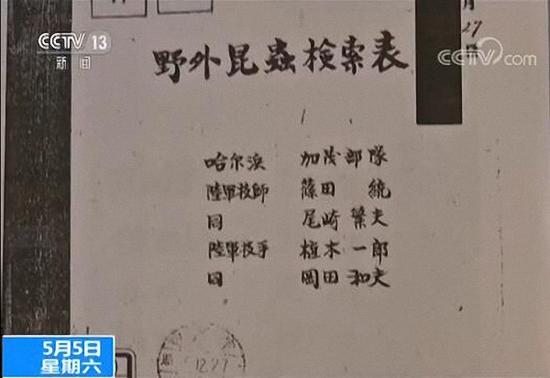 CCTV 13
新闻
27
CCTV.com
野外昆蟲検索表
哈尔浜 加茂部隊
陸軍技師 篠田 統
同 尾崎 繁夫
陸軍技手 植木 一郎
同 岡田 和夫
12.27
5月5日
星期六